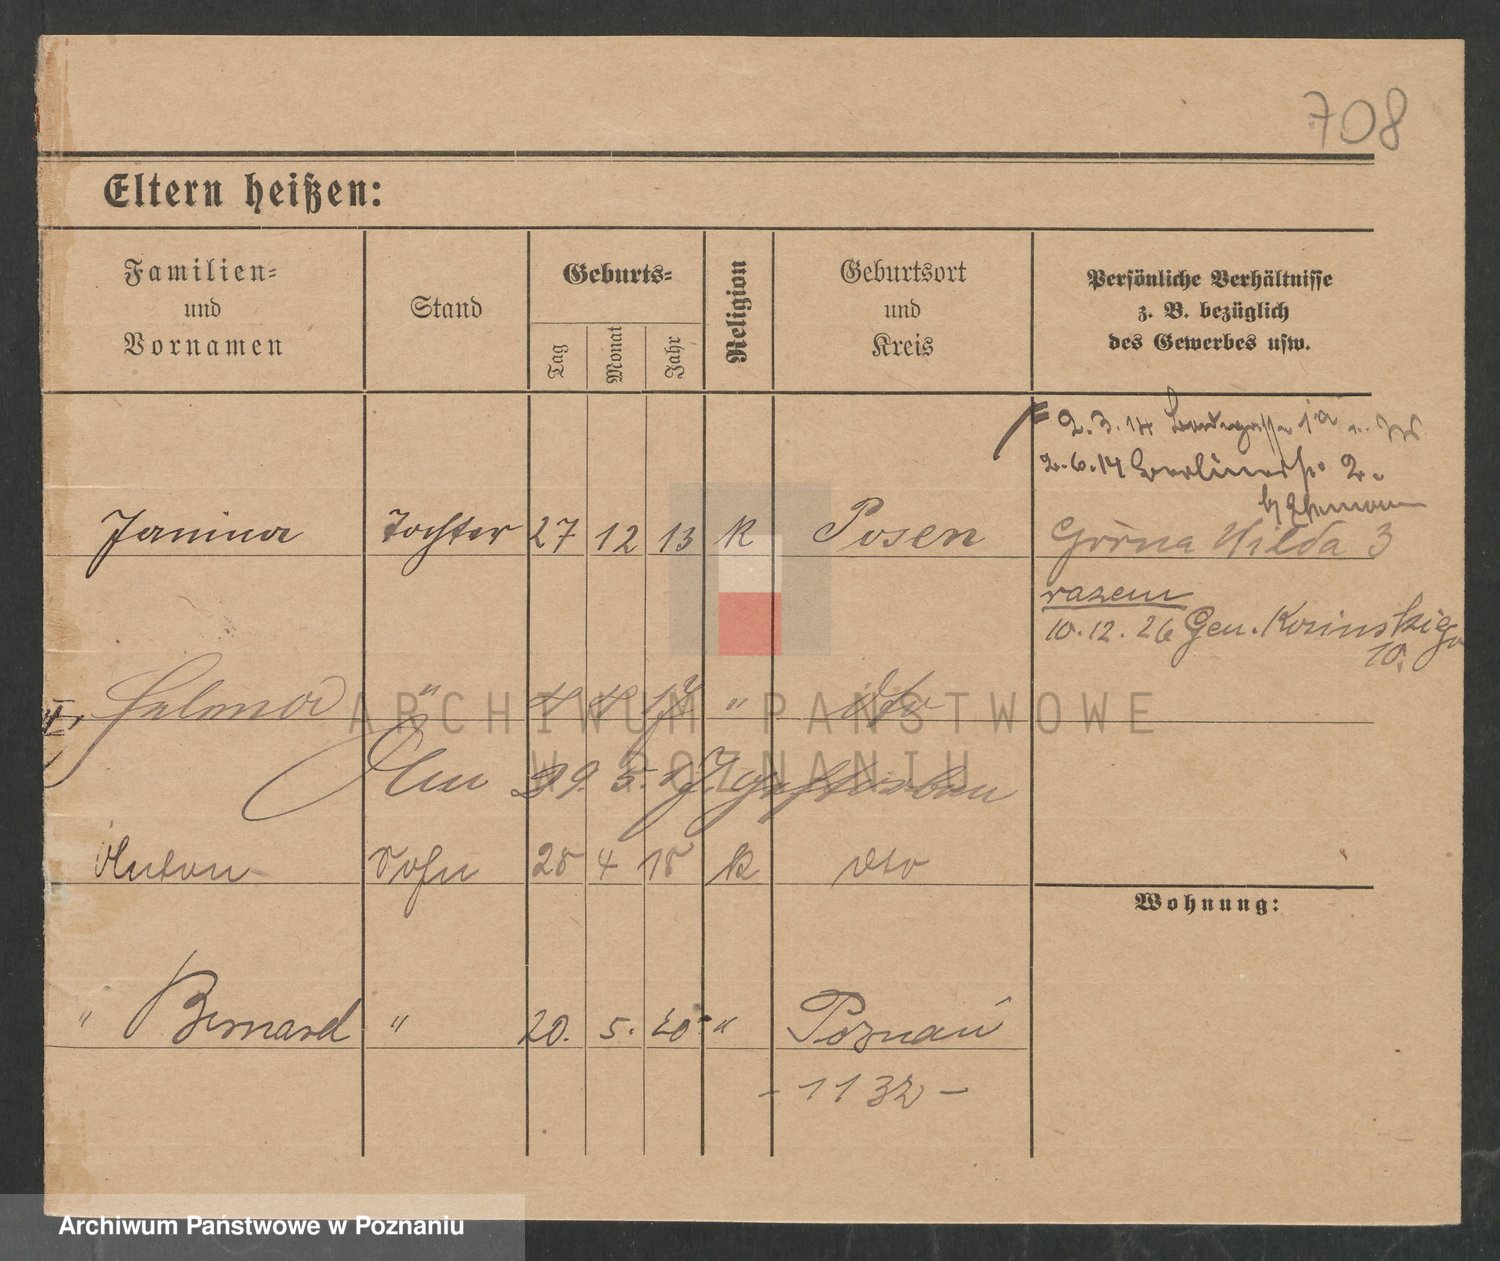 708
Eltern heißen:
Familien=
und
Vornamen
Stand
Geburts=
Tag
Monat
Jahr
Religion
Geburtsort
und
Kreis
Persönliche Verhältnisse
z. B. bezüglich
des Gewerbes usw.
2.3.14
2.6.14 Berlinerstr. 2.
Janina Tochter 27 12 13 k Posen
Górna Wilda 3
razem
10.12.26 Gen. Kosinskiego
10.
" 4 4 17 " dto
5. 17 gestorben
Anton Sohn 28 4 18 k dto
Wohnung:
" Bernard " 20. 5. 20 " Poznań
- 1132 -
ARCHIWUM PAŃSTWOWE
W POZNANIU
Archiwum Państwowe w Poznaniu